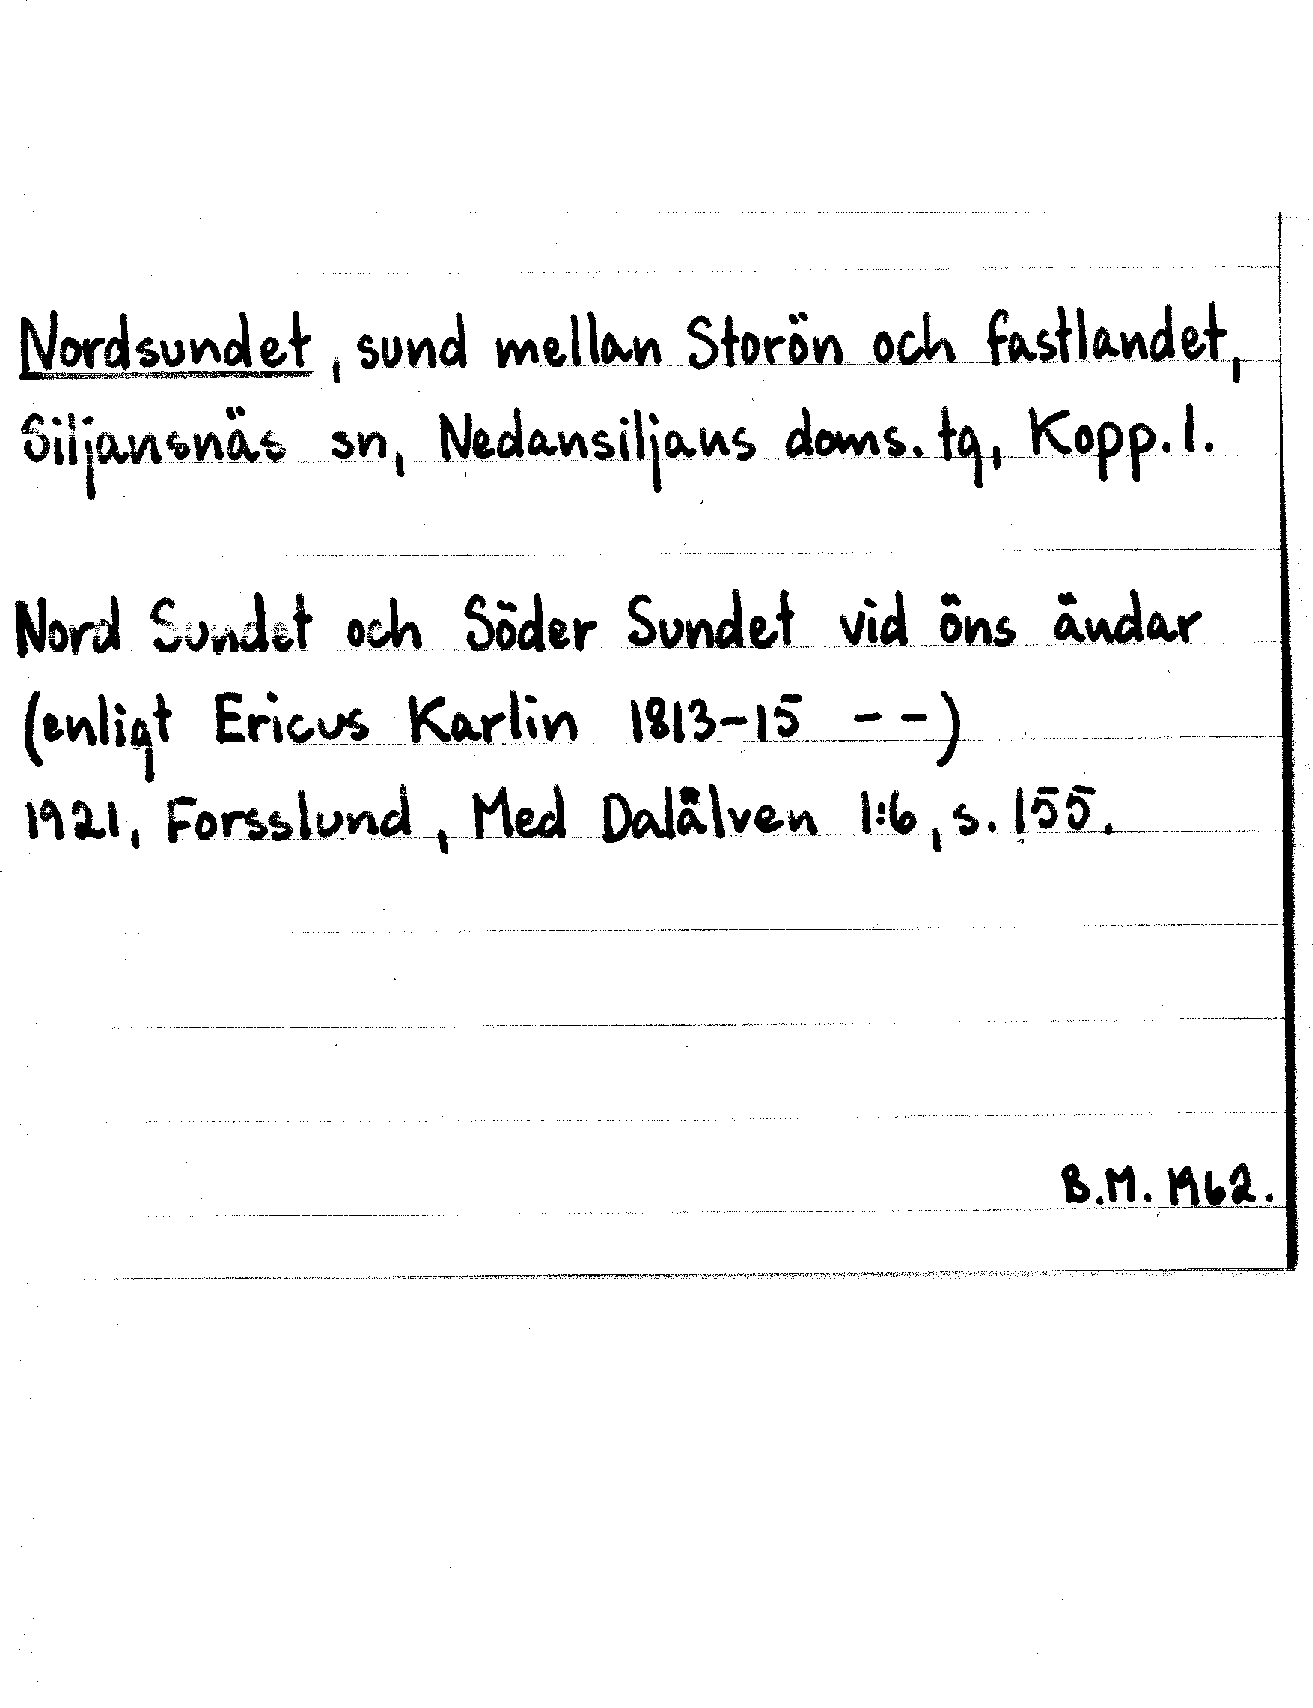 Nordsundet, sund mellan Storön och fastlandet,
Siljansnäs sn, Nedansiljans doms. tg, Kopp. l.
Nord Sundet och Söder Sundet vid öns ändar
(enligt Ericus Karlin 1813-15 --)
1921, Forsslund, Med Dalälven 1:6, s. 155.
B.M. 1962.